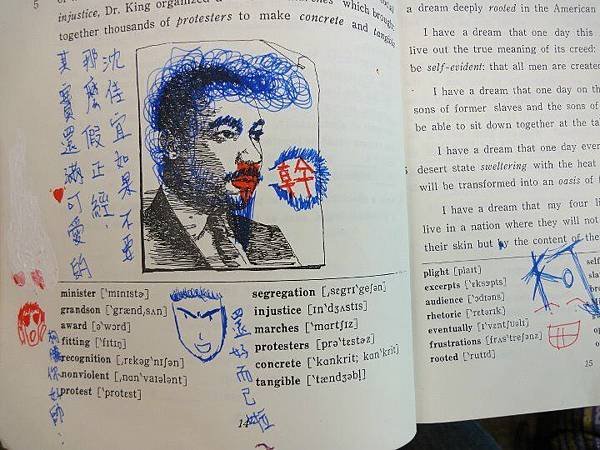 injustice, Dr. King organized
together thousands of protesters to make concrete and
沈佳宜如果不要
那麼假正經,
其實還滿可愛的
幹
minister [ˈmɪnɪstɚ]
grandson [ˈgrænd,sʌn]
award [əˈwɔrd]
fitting [ˈfɪtɪŋ]
recognition [,rɛkəgˈnɪʃən]
nonviolent [,nɑnˈvaɪələnt]
protest [ˈprotɛst]
segregation [,sɛgrɪˈgeʃən]
injustice [ɪnˈdʒʌstɪs]
marches [ˈmɑrtʃɪz]
protesters [prəˈtɛstɚz]
concrete [ˈkɑnkrit; kɑnˈkrit]
tangible [ˈtændʒəbl̩]
還好而已啦
14
a dream deeply rooted in the American
I have a dream that one day this
live out the true meaning of its creed:
be self-evident: that all men are created
I have a dream that one day on the
sons of former slaves and the sons of
be able to sit down together at the
I have a dream that one day even
desert state sweltering with the heat
will be transformed into an oasis of
I have a dream that my four
live in a nation where they will not
their skin but by the content of the
plight [plaɪt]
excerpts [ˈɛksɚpts]
audience [ˈɔdɪəns]
rhetoric [ˈrɛtərɪk]
eventually [ɪˈvɛntʃʊəlɪ]
frustrations [frʌsˈtreʃənz]
rooted [ˈrutɪd]
KO
15